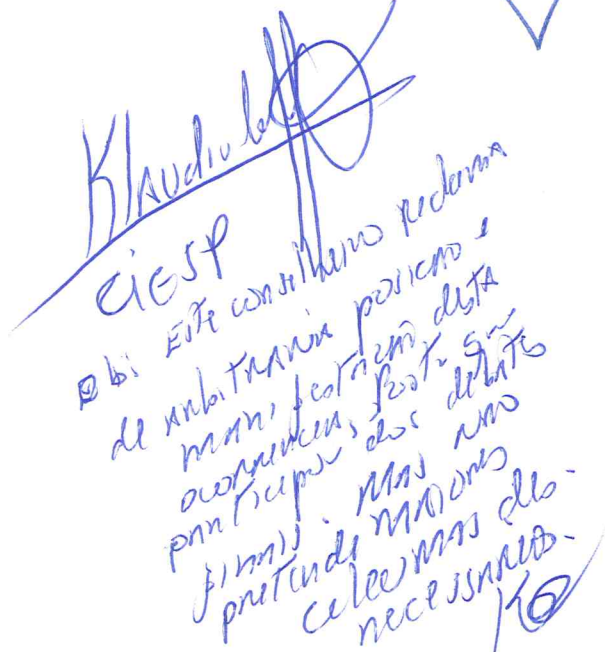 Klaudio
CIESP
Obs: Este conselheiro reclama
de arbitrária posição e
manifestação desta
ocorrência,
participar dos debates
finais. Mas não
pretende maiores
celeumas des-
necessárias.